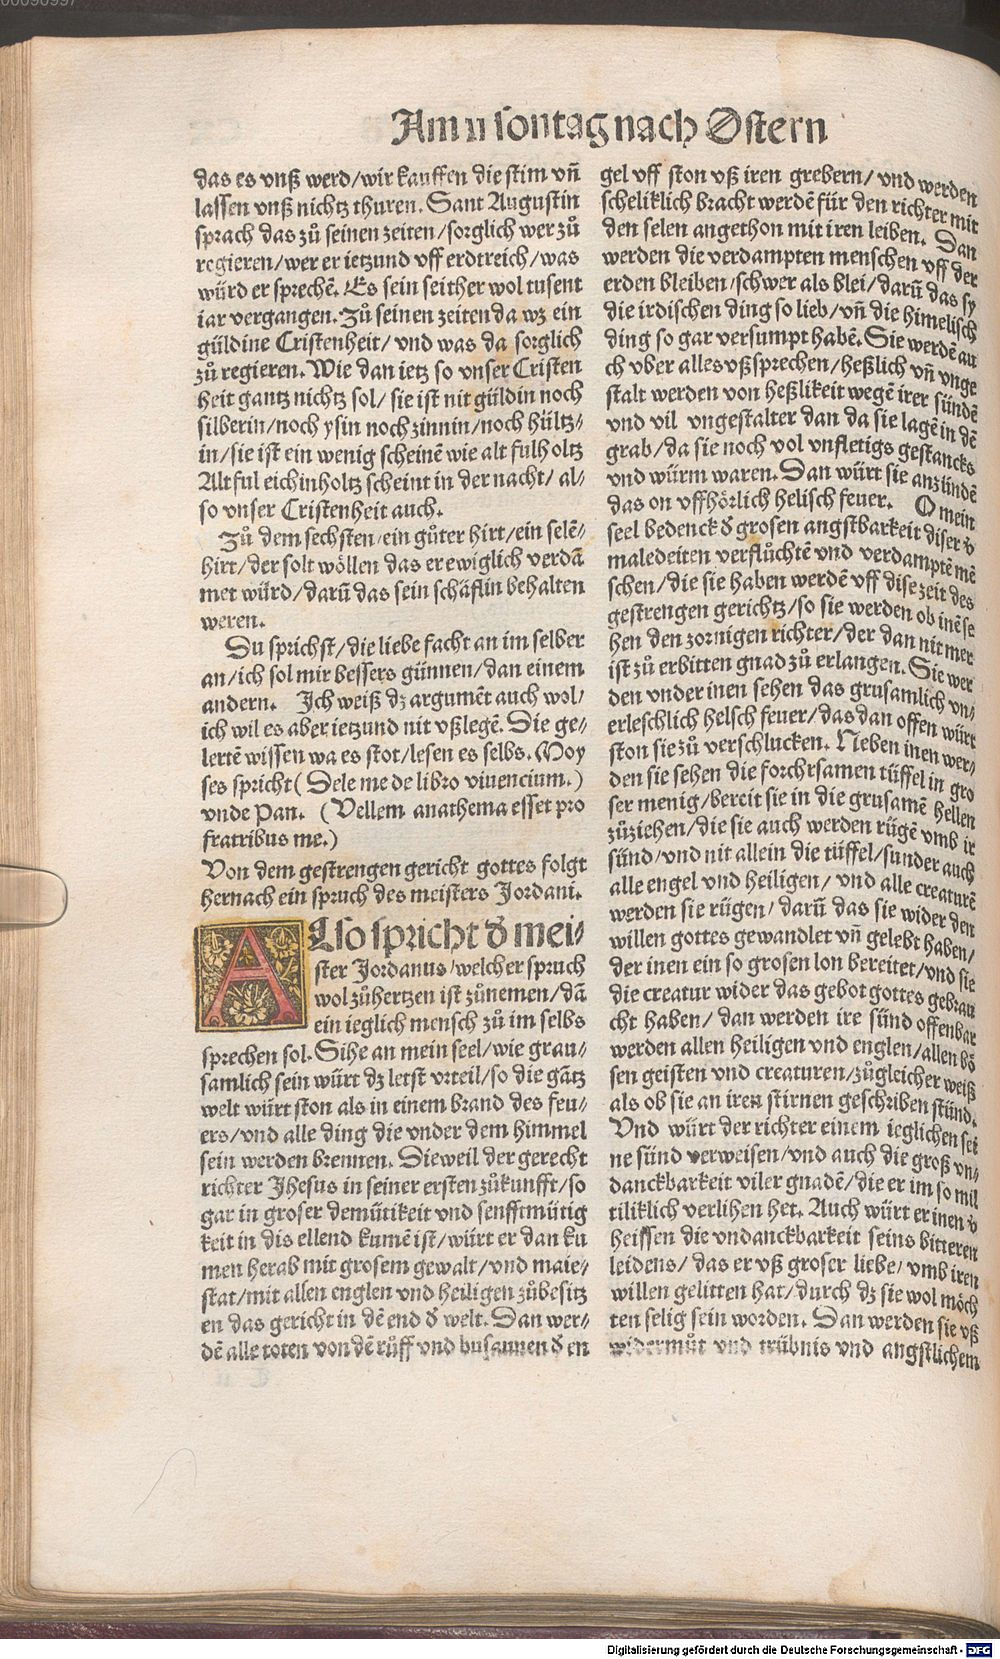 00090997
Am ii sontag nach Ostern
das es vnß werd/wir kauffen die stim vñ
lassen vnß nichtz thuren. Sant Augustin
sprach das zů seinen zeiten/sorglich wer zů
regieren/wer er ietzund vff erdtreich/was
würd er sprechē. Es sein seither wol tusent
iar vergangen. Zů seinen zeiten da wz ein
güldine Cristenheit/vnd was da sorglich
zů regieren. Wie dan ietz so vnser Cristen
heit gantz nichtz sol/sie ist nit güldin noch
silberin/noch ysin noch zinnin/noch hültz⸗
in/sie ist ein wenig scheinē wie alt ful holtz
Alt ful eichin holtz scheint in der nacht/al⸗
so vnser Cristenheit auch.
Zů dem sechsten/ein gůter hirt/ein selē⸗
hirt/der solt wöllen das er ewiglich verdā
met würd/darū das sein schäflin behalten
weren.
Du sprichst/die liebe facht an im selber
an/ich sol mir bessers günnen/dan einem
andern. Ich weiß dz argumēt auch wol/
ich wil es aber ietzund nit vßlegē. Die ge⸗
lertē wissen wa es stot/lesen es selbs. Moy
ses spricht (Dele me de libro viuencium.)
vnde Pan. (Vellem anathema esset pro
fratribus me.)
Von dem gestrengen gericht gottes folgt
hernach ein spruch des meisters Jordani.
ALso spricht d̕ mei⸗
ster Jordanus/welcher spruch
wol zůhertzen ist zůnemen/dā
ein ieglich mensch zů im selbs
sprechen sol. Sihe an mein seel/wie grau⸗
samlich sein würt dz letst vrteil/so die gātz
welt würt ston als in einem brand des feu⸗
ers/vnd alle ding die vnder dem himmel
sein werden brennen. Dieweil der gerecht
richter Jhesus in seiner ersten zůkunfft/so
gar in groser demütikeit vnd senfftmütig
keit in dis ellend kumē ist/würt er dan ku
men herab mit grosem gewalt/vnd maie⸗
stat/mit allen englen vnd heiligen zůbesitz
en das gericht in dē end d̕ welt. Dan wer⸗
dē alle toten von dē růff vnd busaunen d̕ en
gel vff ston vß iren grebern/vnd werden
scheliklich bracht werdē für den richter mit
den selen angethon mit iren leiben. Dan
werden die verdampten menschen vff der
erden bleiben/schwer als blei/darū das sy
die irdischen ding so lieb/vñ die himelisch
ding so gar versumpt habē. Sie werdē au
ch vber alles vßsprechen/heßlich vñ vnge
stalt werden von heßlikeit wegē irer sündē
vnd vil vngestalter dan da sie lagē in dē
grab/da sie noch vol vnfletigs gestancks
vnd würm waren. Dan würt sie anzündē
das on vffhörlich helisch feuer. O mein
seel bedenck d̕ grosen angstbarkeit diser v̕
maledeiten verflůchtē vnd verdamptē mē
schen/die sie haben werdē vff dise zeit des
gestrengen gerichtz/so sie werden ob inē se
hen den zornigen richter/der dan nit mer
ist zů erbitten gnad zů erlangen. Sie wer
den vnder inen sehen das grusamlich vn⸗
erleschlich helsch feuer/das dan offen würt
ston sie zů verschlucken. Neben inen wer⸗
den sie sehen die forchrsamen tüffel in gro
ser menig/bereit sie in die grusamē hellen
zůziehen/die sie auch werden rügē vmb ir
sünd/vnd nit allein die tüffel/sunder auch
alle engel vnd heiligen/vnd alle creaturē
werden sie rügen/darū das sie wider den
willen gottes gewandlet vñ gelebt haben/
der inen ein so grosen lon bereitet/vnd sie
die creatur wider das gebot gottes gebrau
cht haben/dan werden ire sünd offenbar
werden allen heiligen vnd englen/allen bö
sen geisten vnd creaturen/zůgleicher weiß
als ob sie an iren stirnen geschriben stünd.
Vnd würt der richter einem ieglichen sei
ne sünd verweisen/vnd auch die groß vn⸗
danckbarkeit viler gnadē/die er im so mil
tiliklich verlihen het. Auch würt er inen v̕
heissen die vndanckbarkeit seins bitteren
leidens/das er vß groser liebe/vmb iren
willen gelitten hat/durch dz sie wol möch
ten selig sein worden. Dan werden sie vß
widermůt vnd trübnis vnd angstlichem
Digitalisierung gefördert durch die Deutsche Forschungsgemeinschaft - DFG